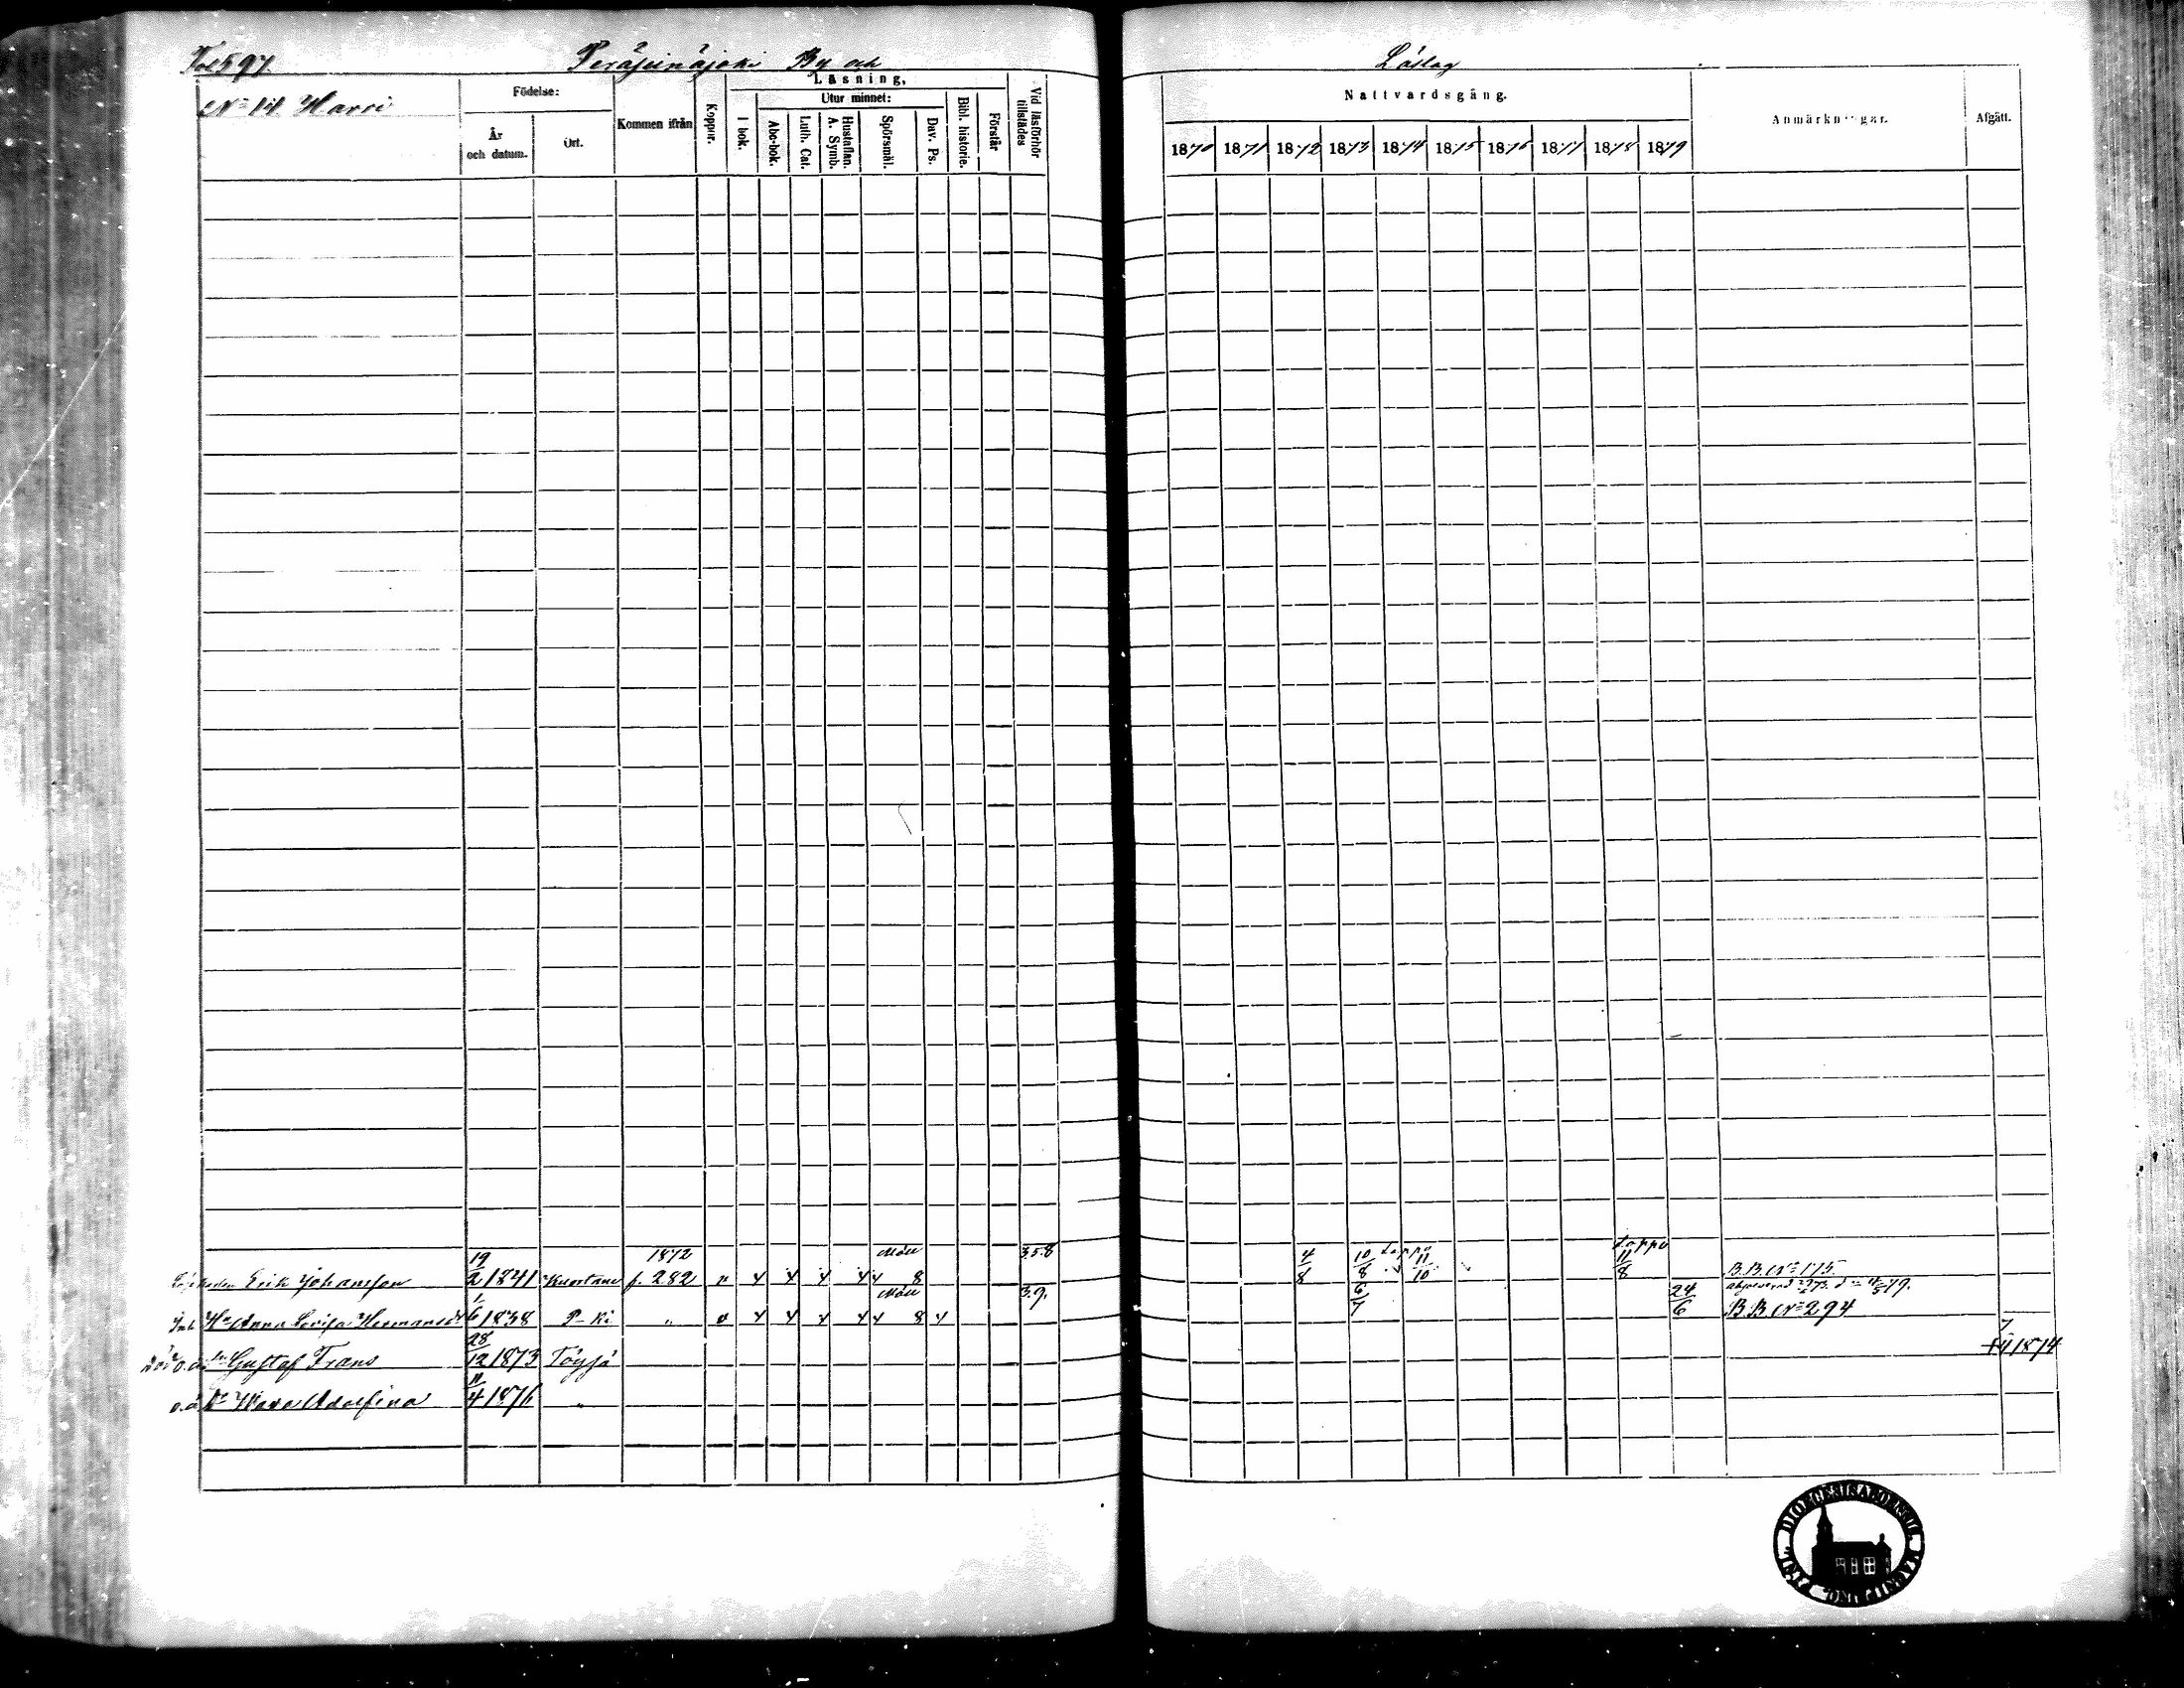 Fol 597. Peräseinäjoki By och Läslag
No 14 Harri
Födelse: År och datum. Ort.
Kommen ifrån
Koppor.
Läsning.
I bok.
Utur minnet:
Abc-bok.
Luth. Cat.
Hustaflan. A. Symb.
Spörsmål.
Dav. Ps.
Bibl. historie.
Förstår
Vid läsförhör tillstädes
Nattvardsgång.
1870 1871 1872 1873 1874 1875 1876 1877 1878 1879
Anmärkningar.
Afgått.
19 1872 3.5.8 4 10 Lappo 11 Lappo 11
Erik Johansson 2 1841 Kuortane f. 282 v 4 4 4 4 4 8 8 8 10 8 B.B. No 175.
1 3.9. 6 24
Inh. Hu Anna Lovisa Hermansdr 6 1838 P-ki " v 4 4 4 4 4 8 4 7 6 B.B. No 294
28 7
död o.ä. Gustaf Frans 12 1873 Töysä 1874
11
o.ä. Dr Maria Adolfina 4 1876 "
DIOECESIS ABOENSIS